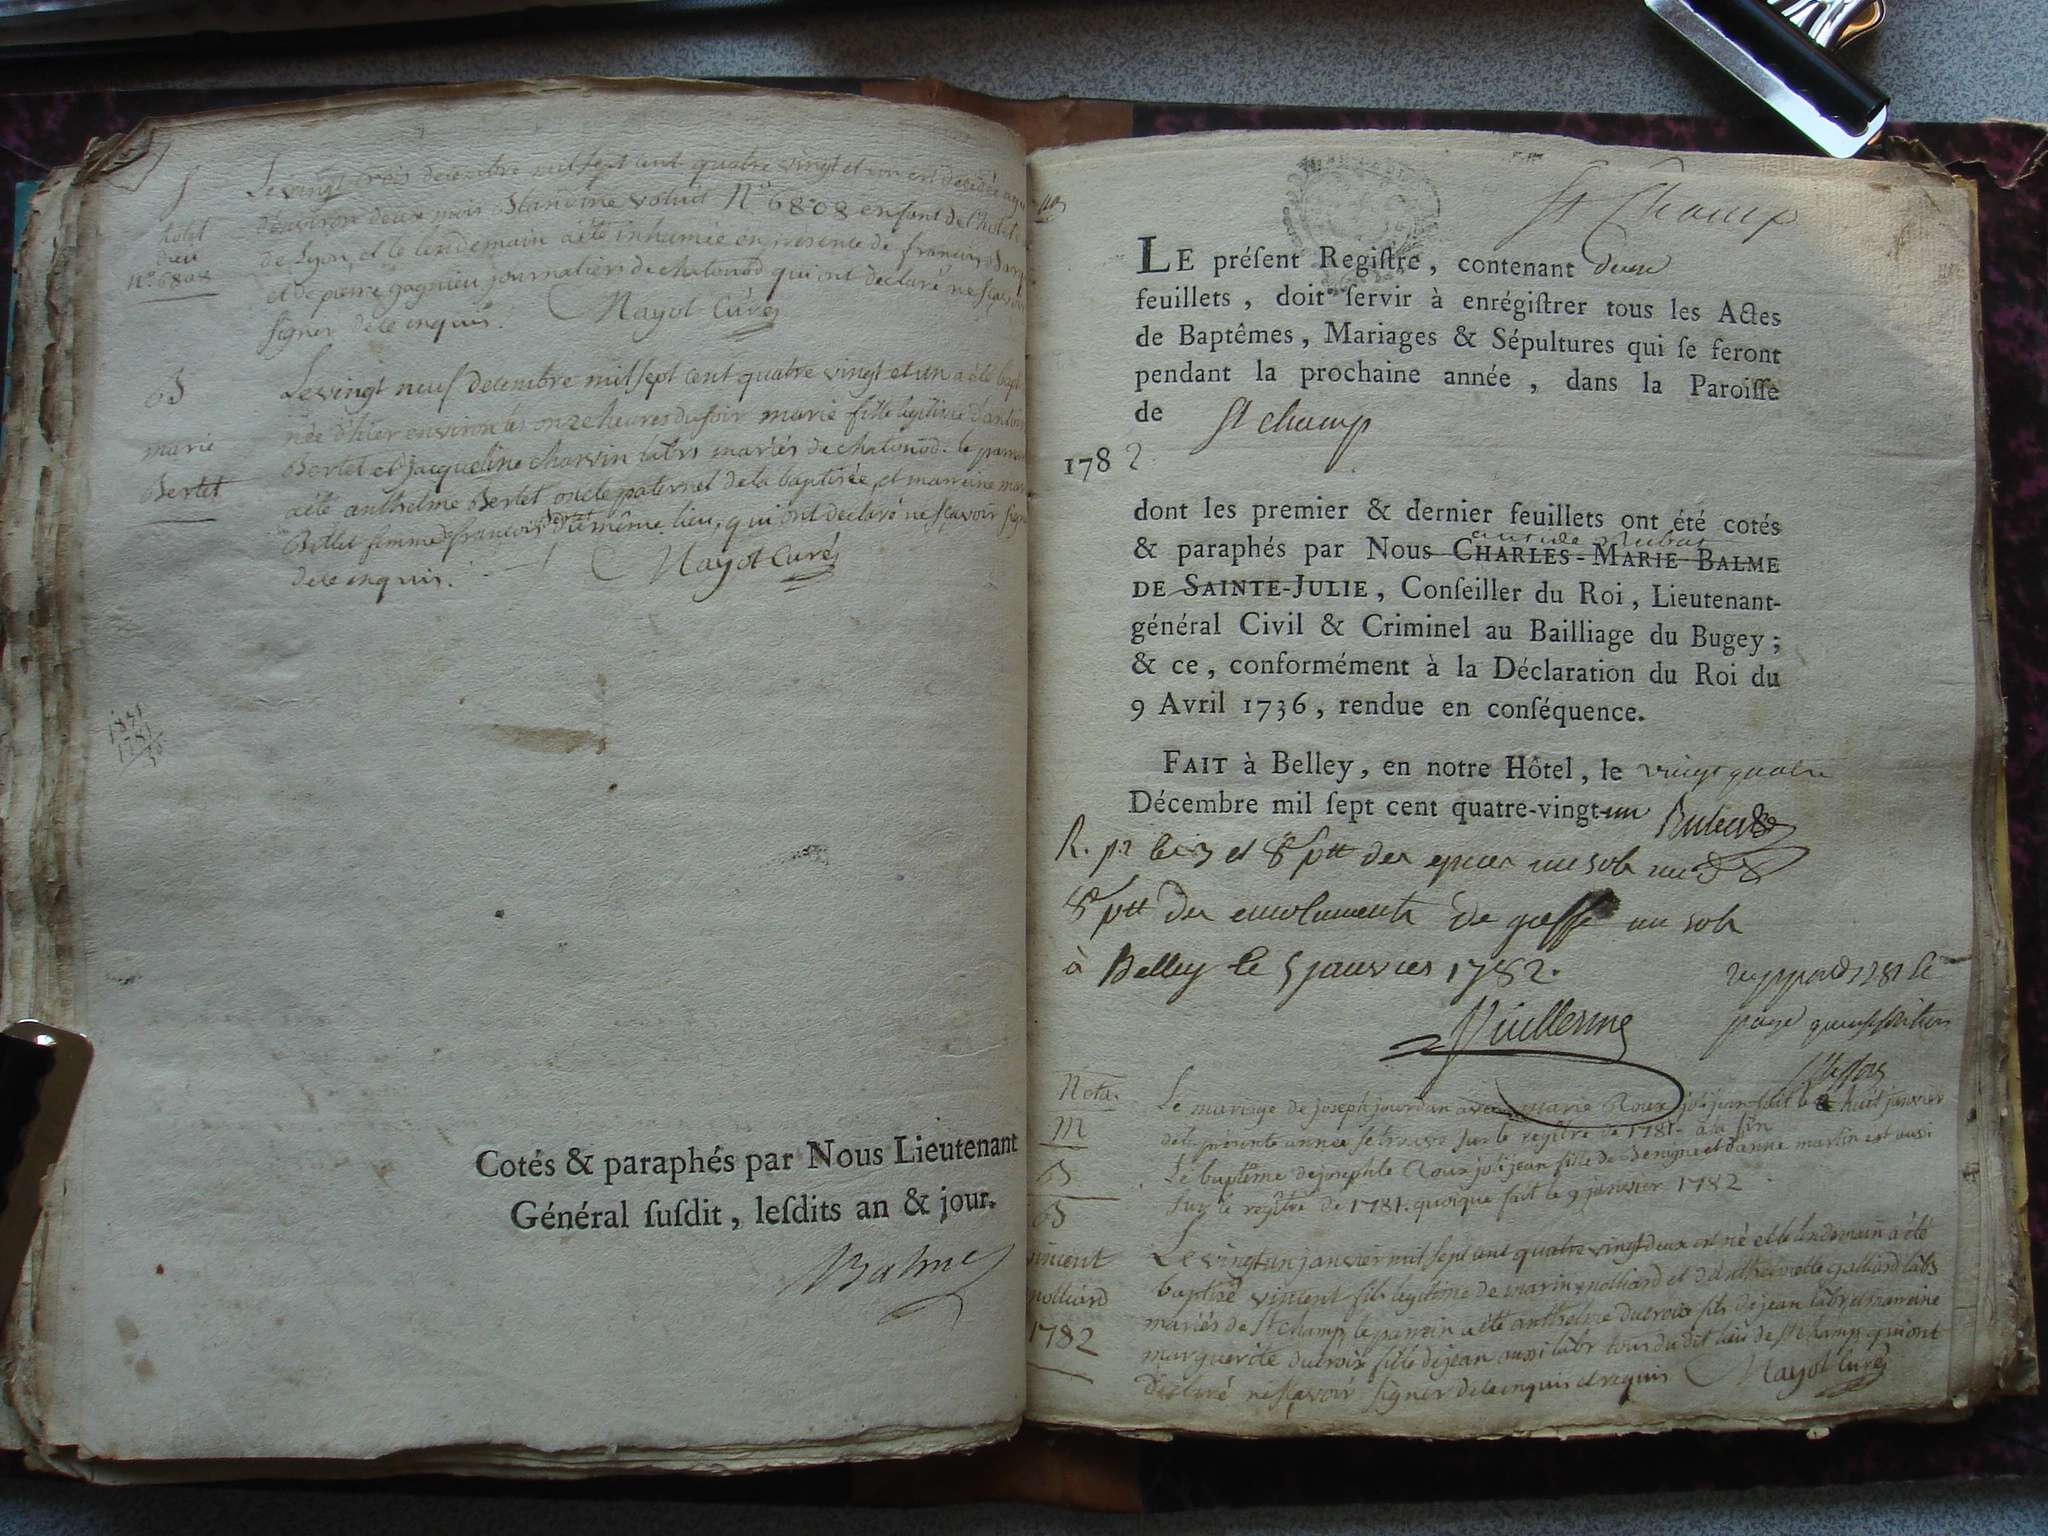 S
hotel
dieu
n° 6808
Le vingt trois decembre mil sept cent quatre vingt et un est decedée agée
d'environ deux mois Blandine N° 6808 enfant de l'hotel
de Lyon, et le lendemain a été inhumée en présence de françois
et de pierre gagnieu journaliers de chatonod qui ont declaré ne sçavoir
signer de ce enquis. Nayol Curé
B
marie
Bertet
Le vingt neuf decembre mil sept cent quatre vingt et un a été bapt
née d'hier environ les onze heures du soir marie fille legitime d'antoine
Bertet et jacqueline charvin labrs mariés de chatonod. le parrain
a été anthelme Bertet oncle paternel de la baptisée, et marraine
Billet femme françois Bertet du même lieu, qui ont declaré ne sçavoir signer
de ce enquis. Nayol Curé
1831
1781
50
Cotés & paraphés par Nous Lieutenant
Général ſuſdit, leſdits an & jour.
Balme
St Champ
LE préſent Regiſtre, contenant deux
feuillets, doit ſervir à enrégiſtrer tous les Actes
de Baptêmes, Mariages & Sépultures qui ſe feront
pendant la prochaine année, dans la Paroiſſe
de St champ
1782
dont les premier & dernier feuillets ont été cotés
& paraphés par Nous CHARLES-MARIE BALME
DE SAINTE-JULIE, Conſeiller du Roi, Lieutenant-
général Civil & Criminel au Bailliage du Bugey;
& ce, conformément à la Déclaration du Roi du
9 Avril 1736, rendue en conſéquence.
FAIT à Belley, en notre Hôtel, le vingt quatre
Décembre mil ſept cent quatre-vingt-un
R. pr et 8 s ptt des epices un sols
8 s ptt des emoluments de greffe un sols
à Belley le 5 janvier 1782.
Vuillerme
Nota.
M
Le mariage de joseph jourdan avec marie Roux joli jean fait le huit janvier
de la présente année se trouve sur le regître de 1781. à la fin
B
Le baptême de josephte Roux joli jean fille de Benigne et d'anne martin est aussi
sur le regître de 1781. quoique fait le 9 janvier 1782.
B
vincent
nolliard
1782
Le vingt un janvier mil sept cent quatre vingt deux est né et le lendemain a été
baptisé vincent fils legitime de marin nolliard et d'anthelmette galliard labrs
mariés de St champ, le parrain a été anthelme ducroix fils de jean labr et marraine
marguerite ducroix fille de jean aussi labr tous du dit lieu de St champ qui ont
declaré ne sçavoir signer de ce enquis et requis Nayol Curé